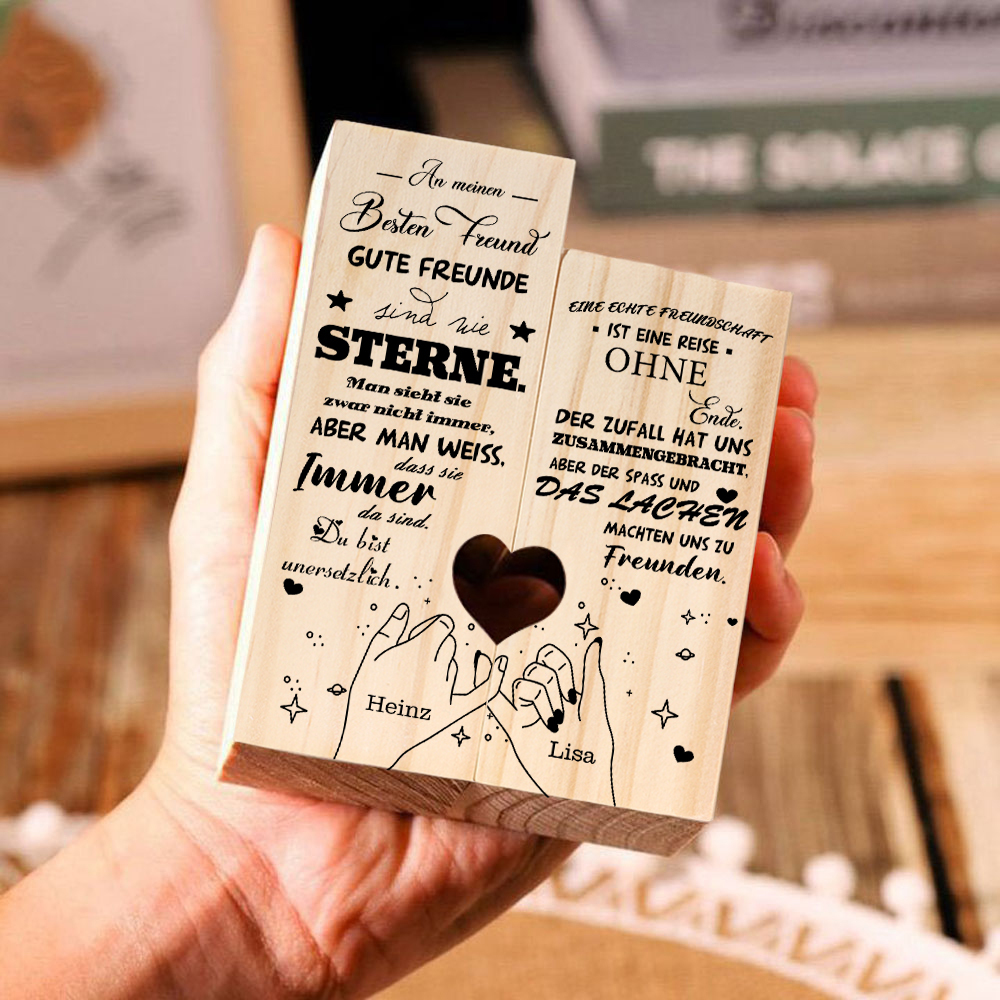 An meinen
Besten Freund
GUTE FREUNDE
sind wie
STERNE.
Man sieht sie
zwar nicht immer,
ABER MAN WEISS,
dass sie
Immer
da sind.
Du bist
unersetzlich.
Heinz
EINE ECHTE FREUNDSCHAFT
IST EINE REISE
OHNE
Ende.
DER ZUFALL HAT UNS
ZUSAMMENGEBRACHT,
ABER DER SPASS UND
DAS LACHEN
MACHTEN UNS ZU
Freunden.
Lisa
THE SOLACE